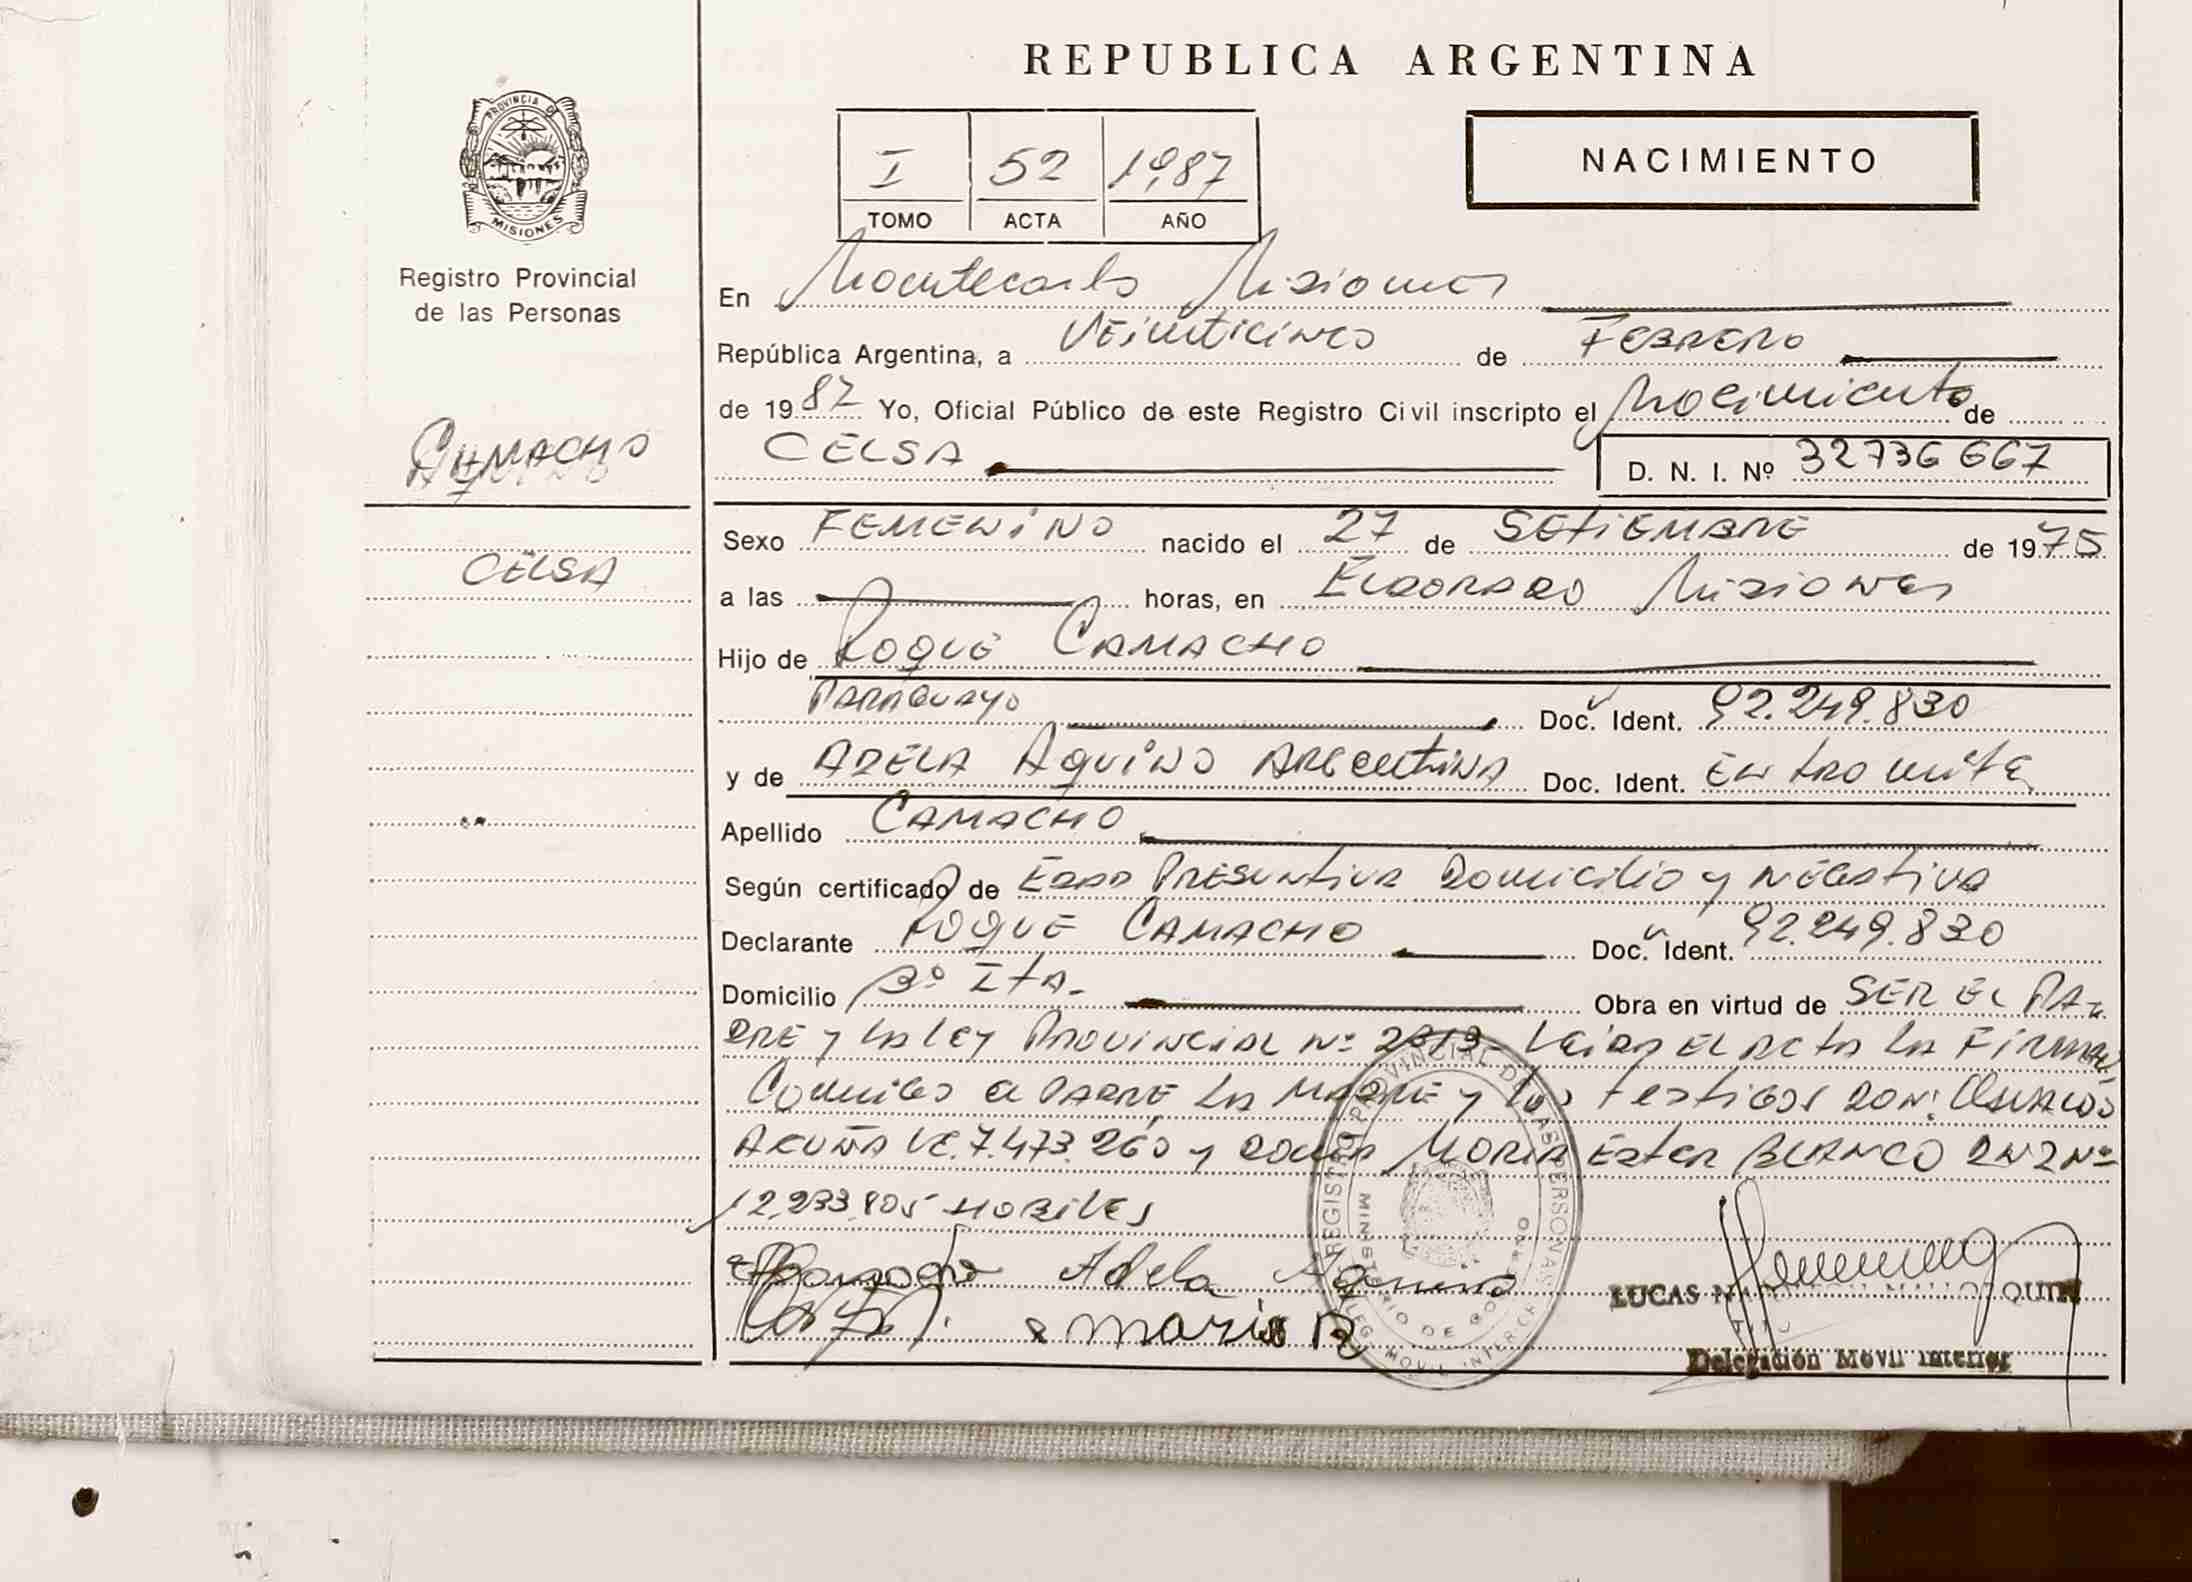 REPUBLICA ARGENTINA
PROVINCIA DE
MISIONES
Registro Provincial
de las Personas
I 52 1987
TOMO ACTA AÑO
NACIMIENTO
En Montecarlo Misiones
República Argentina, a Veinticinco de Febrero
de 1987 Yo, Oficial Público de este Registro Civil inscripto el Nacimiento de
CELSA
D. N. I. Nº 32736667
CAMACHO
CELSA
Sexo FEMENINO nacido el 27 de SETIEMBRE de 1975
a las horas, en ELDORADO Misiones
Hijo de ROQUE CAMACHO
PARAGUAYO Doc. Ident. 92.249.830
y de ADELA AQUINO ARGENTINA Doc. Ident. EN tramite
Apellido CAMACHO
Según certificado de EDAD PRESUNTIVA Domicilio y NEGATIVA
Declarante ROQUE CAMACHO Doc. Ident. 92.249.830
Domicilio Bº ITA. Obra en virtud de SER EL PA-
DRE y LA LEY PROVINCIAL Nº Leida EL ACTA LA FIRMAN
Conmigo el PADRE, LA MADRE y los testigos DON:
ACUÑA LE. 7.473.260 y doña MARIA Ester BLANCO DNI Nº
12.233.805 HABILES
Adela Aquino
Maria B
REGISTRO PROVINCIAL DE LAS PERSONAS
MINISTERIO DE GOBIERNO
DELEG. MOVIL INTERIOR
LUCAS
Delegación Móvil Interior